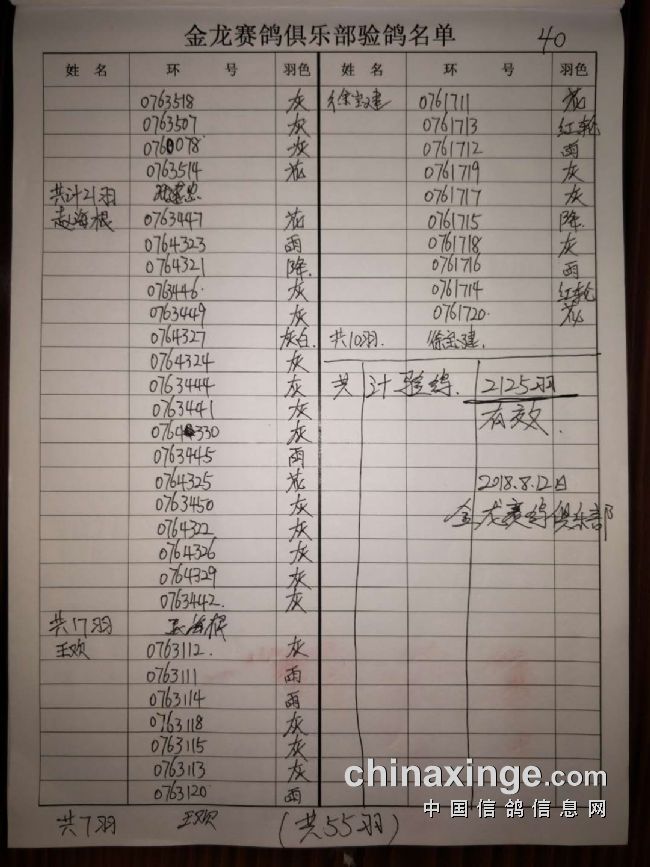 金龙赛鸽俱乐部验鸽名单
40
姓 名 环 号 羽色
0763518 灰
0763507 灰
0760078 灰
0763514 花
共计21羽
赵海根 0763447 花
0764323 雨
0764321 降.
0763446 灰
0763449 灰
0764327 灰白.
0764324 灰
0763444 灰
0763441 灰
0764330 灰
0763445 雨
0764325 花
0763450 灰
0764322 灰
0764326 灰
0764329 灰
0763442. 灰
共17羽 海根
王欢 0763112. 灰
0763111 雨
0763114 雨
0763118 灰
0763115 灰
0763113 灰
0763120 雨
共7羽 王欢 (共55羽)
姓 名 环 号 羽色
徐宝建 0761711 花
0761713 红轮
0761712 雨
0761719 灰
0761717 灰
0761715 降.
0761718 灰
0761716 雨
0761714 红轮
0761720. 花
共10羽. 徐宝建.
共计验鸽. 2125羽
有效.
2018.8.12日
金龙赛鸽俱乐部
chinaxinge.com
中国信鸽信息网